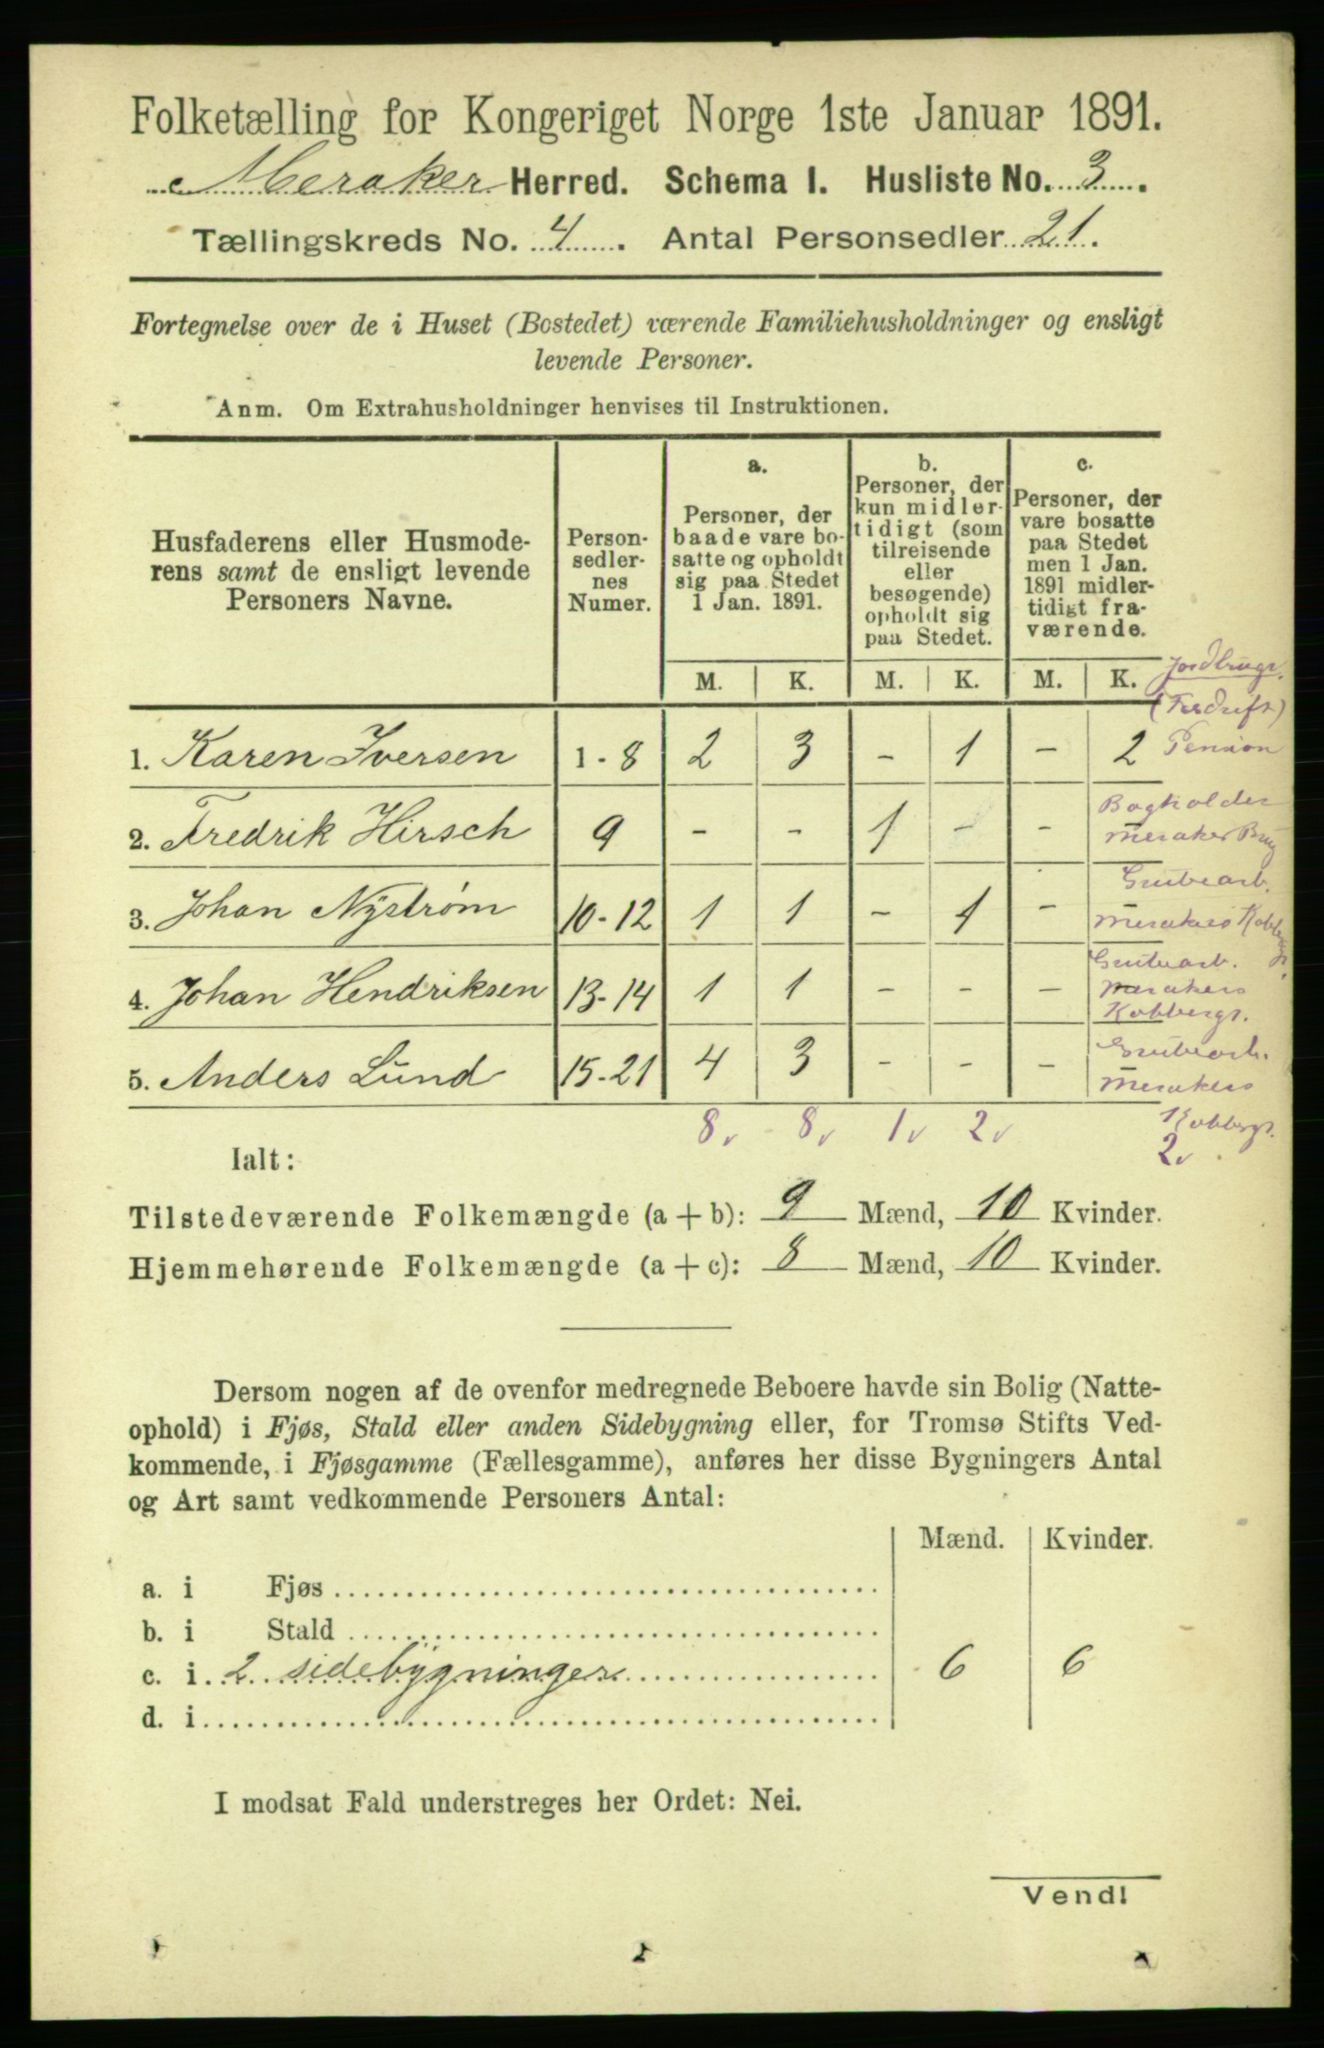 Folketælling for Kongeriget Norge 1ste Januar 1891.
Meraker Herred. Schema I. Husliste No. 3.
Tællingskreds No. 4. Antal Personsedler 21.
Fortegnelse over de i Huset (Bostedet) værende Familiehusholdninger og ensligt
levende Personer.
Anm. Om Extrahusholdninger henvises til Instruktionen.
Husfaderens eller Husmode-
rens samt de ensligt levende
Personers Navne.
Person-
sedler-
nes
Numer.
a.
Personer, der
baade vare bo-
satte og opholdt
sig paa Stedet
1 Jan. 1891.
b.
Personer, der
kun midler-
tidigt (som
tilreisende
eller
besøgende)
opholdt sig
paa Stedet.
c.
Personer, der
vare bosatte
paa Stedet
men 1 Jan.
1891 midler-
tidigt fra-
værende.
M. K. M. K. M. K. Jordbrugr.
1. Karen Iversen 1-8 2 3 - 1 - 2 Pension
2. Fredrik Hirsch 9 - - 1 - - - Bogholder
Meraker Brug
3. Johan Nystrøm 10-12 1 1 - 1 - - Grubearb.
Merakers Kobberg.
4. Johan Hendriksen 13-14 1 1 - - - - Grubearb.
Merakers
Kobbergr.
5. Anders Lund 15-21 4 3 - - - - Grubearb.
Merakers
Kobbergr.
8 8 1 2 2
Ialt:
Tilstedeværende Folkemængde (a + b): 9 Mænd, 10 Kvinder.
Hjemmehørende Folkemængde (a + c): 8 Mænd, 10 Kvinder.
Dersom nogen af de ovenfor medregnede Beboere havde sin Bolig (Natte-
ophold) i Fjøs, Stald eller anden Sidebygning eller, for Tromsø Stifts Ved-
kommende, i Fjøsgamme (Fællesgamme), anføres her disse Bygningers Antal
og Art samt vedkommende Personers Antal:
Mænd. Kvinder.
a. i Fjøs
b. i Stald
c. i 2 sidebygninger 6 6
d. i
I modsat Fald understreges her Ordet: Nei.
Vend!